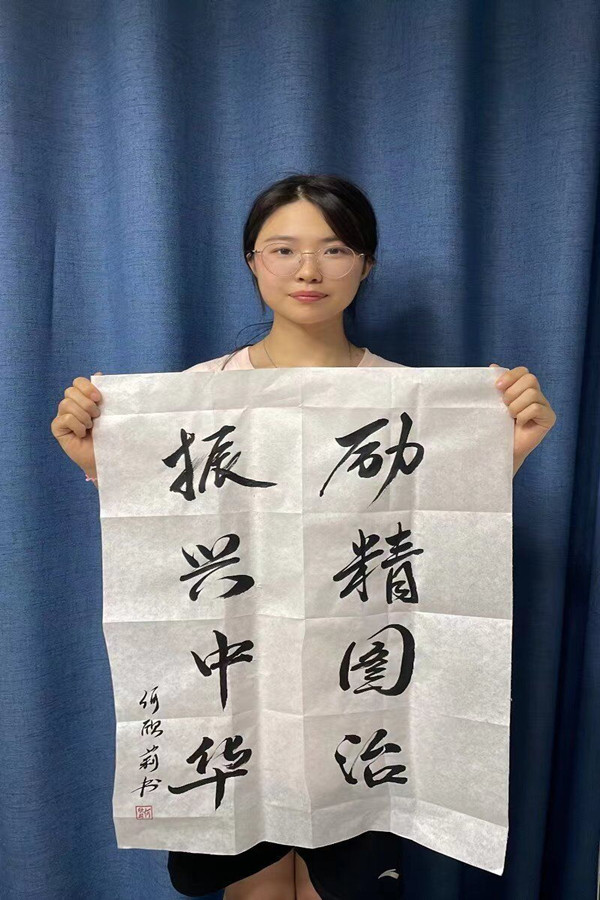 励精图治
振兴中华
何欣莉书